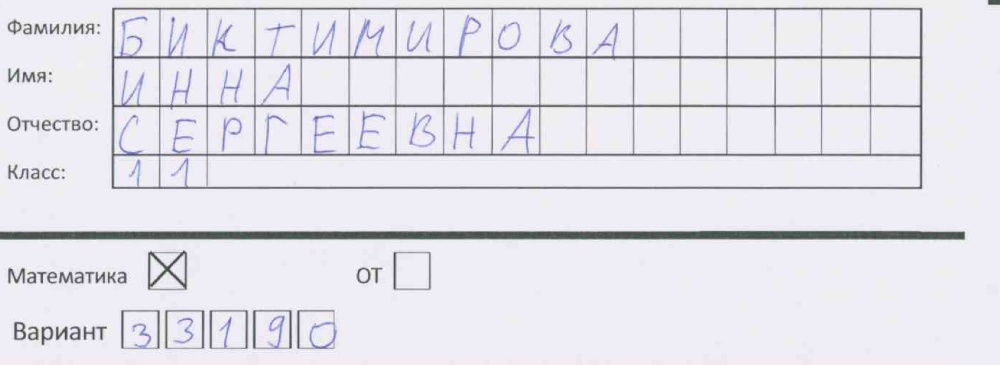 Фамилия: БИКТИМИРОВА
Имя: ИННА
Отчество: СЕРГЕЕВНА
Класс: 11
Математика ☒ ОТ ☐
Вариант 33190